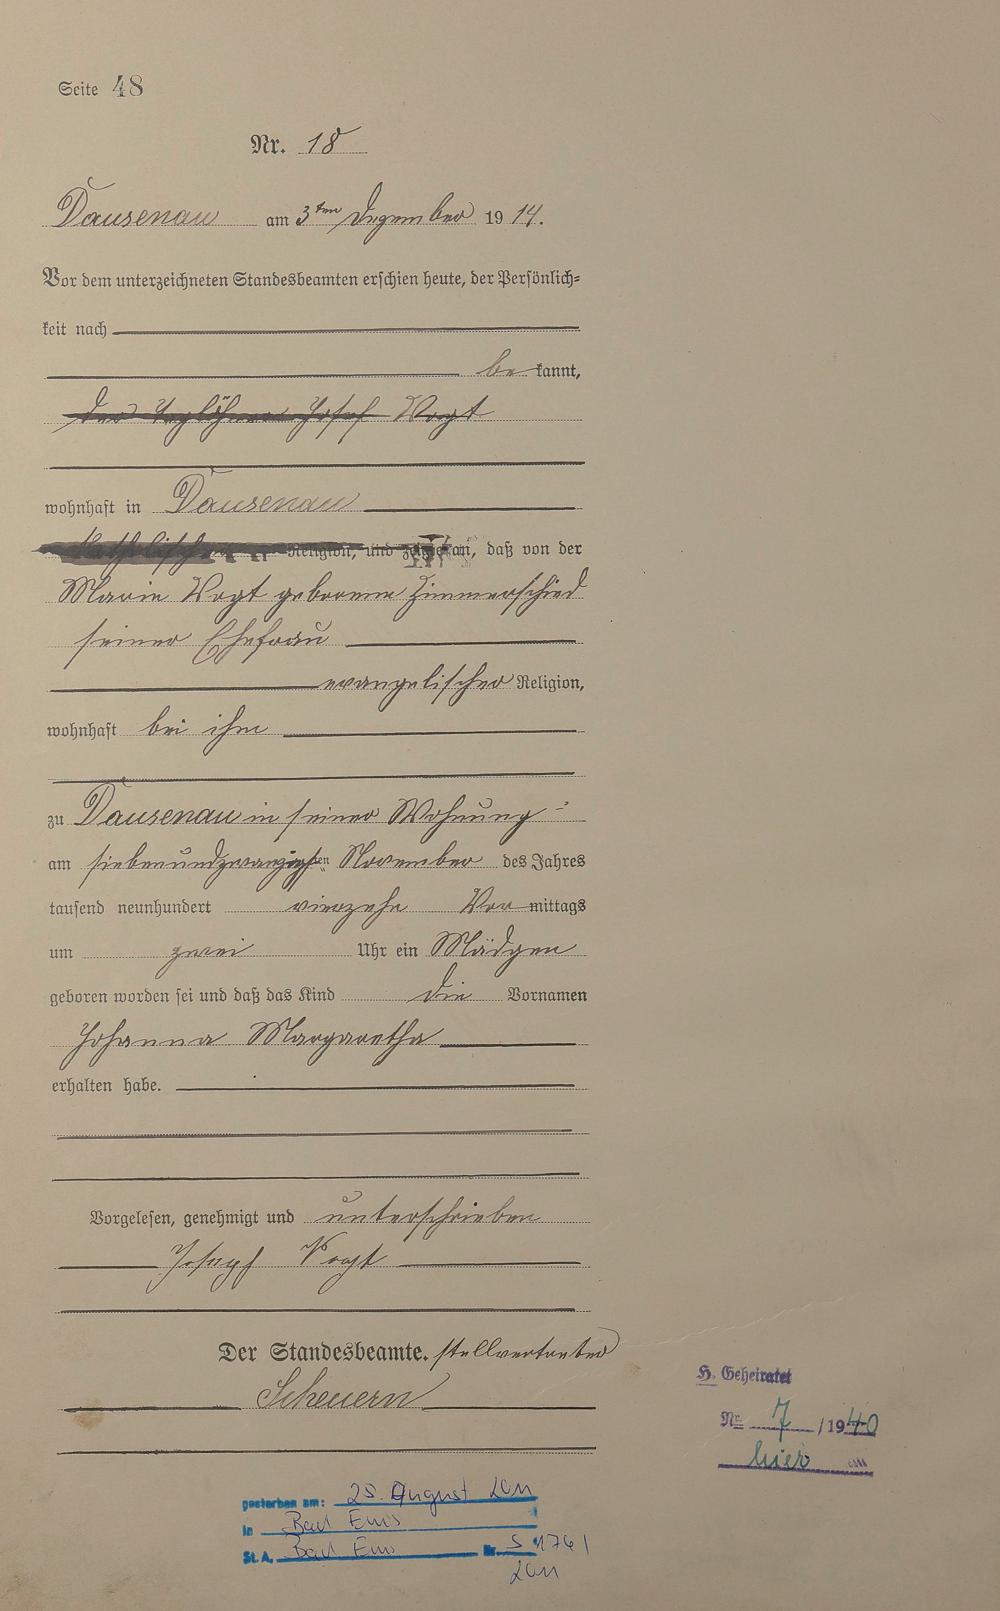 Seite 48
Nr. 18
Dausenau am 3ten Dezember 1914.
Vor dem unterzeichneten Standesbeamten erschien heute, der Persönlich=
keit nach
bekannt,
der Taglöhner Josef Vogt
wohnhaft in Dausenau
katholischer Religion, und zeigte an, daß von der
Marie Vogt geborene Zimmerschied
seiner Ehefrau
evangelischer Religion,
wohnhaft bei ihm
zu Dausenau in seiner Wohnung
am siebenundzwanzigsten November des Jahres
tausend neunhundert vierzehn Vormittags
um zwei Uhr ein Mädgen
geboren worden sei und daß das Kind die Vornamen
Johanna Margaretha
erhalten habe.
Vorgelesen, genehmigt und unterschrieben
Joseph Vogt
Der Standesbeamte. stellvertreter
Scheuern
H. Geheiratet
Nr. 7 / 1940
hier
gestorben am: 25. August 2011
in Bad Ems
St.A. Bad Ems Nr. S 176/
2011